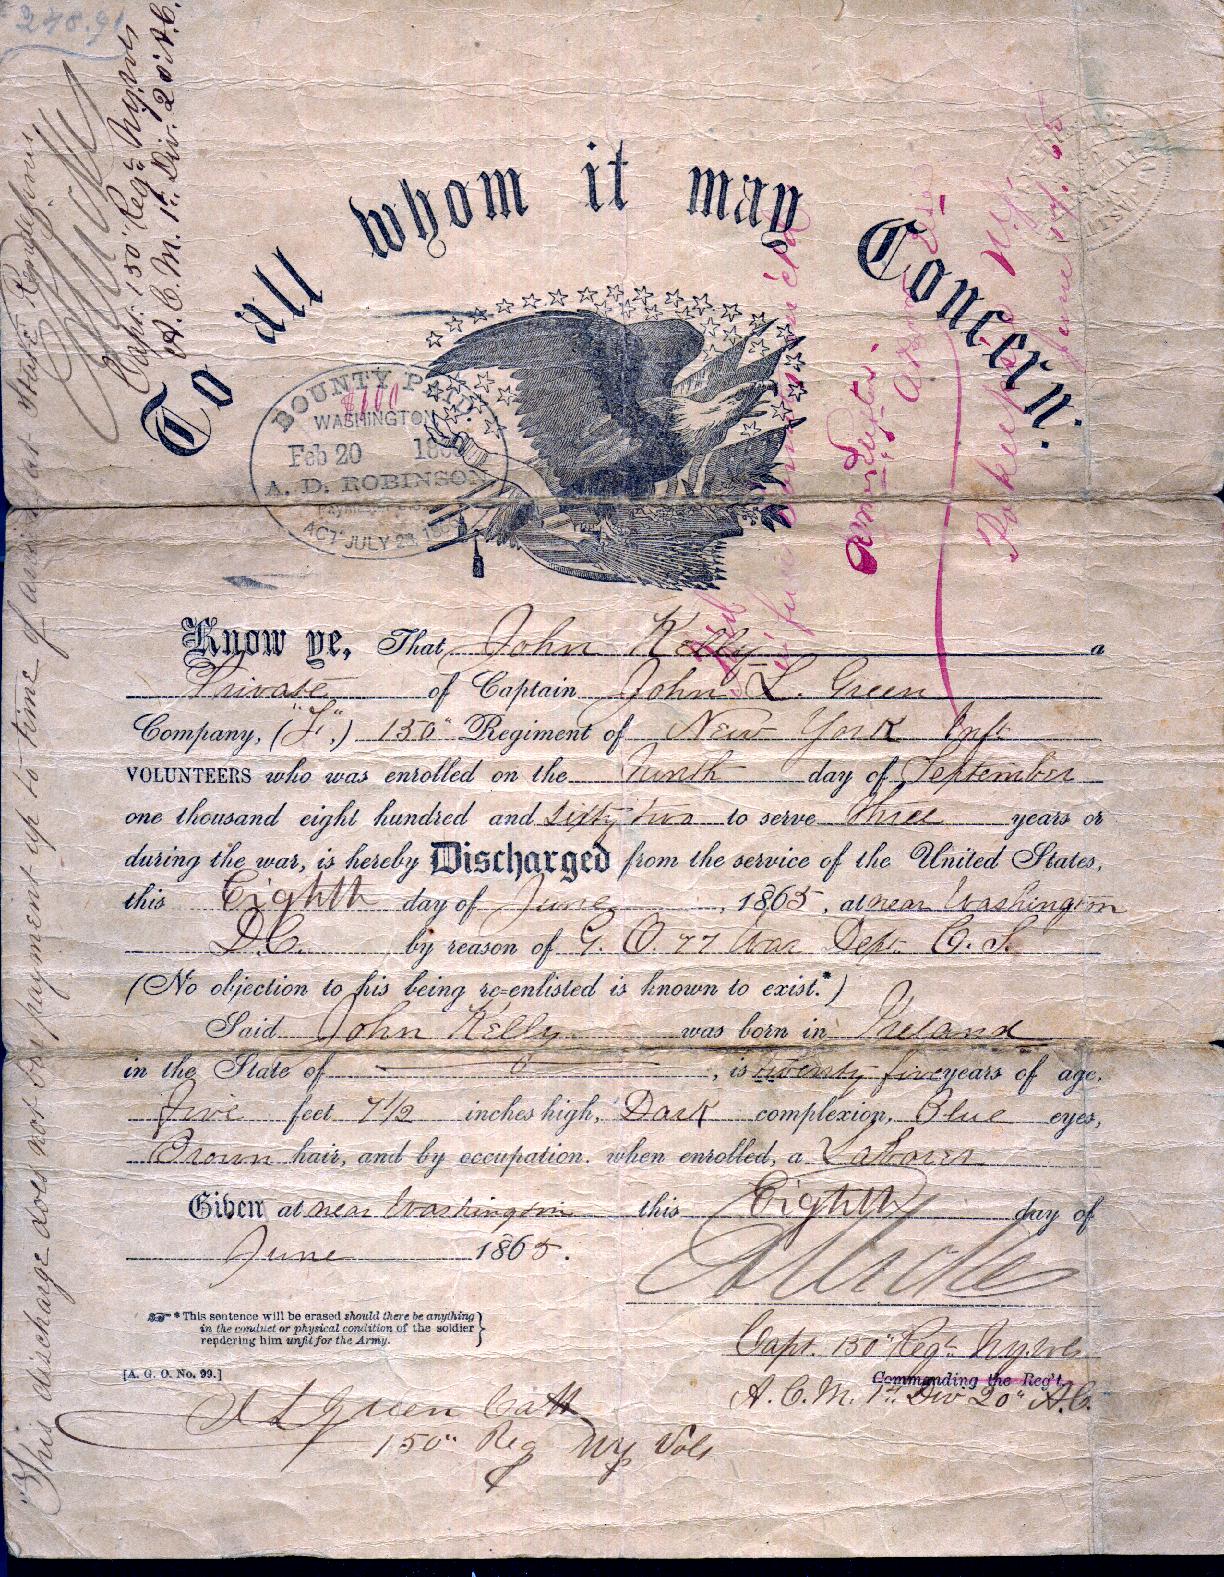 To all whom it may Concern.
BOUNTY PAID
$100
WASHINGTON
Feb 20 186
A. D. ROBINSON
ACT JULY 28, 186
Know ye, That John Kelly a
Private of Captain John L. Green
Company, ("F.") 150" Regiment of New York Inft
VOLUNTEERS who was enrolled on the Ninth day of September
one thousand eight hundred and sixty two to serve three years or
during the war, is hereby Discharged from the service of the United States,
this Eighth day of June, 1865, at near Washington
D.C. by reason of G. O. 77 War Dept. C. S.
(No objection to his being re-enlisted is known to exist.*)
Said John Kelly was born in Ireland
in the State of , is twenty five years of age,
Five feet 7 1/2 inches high, Dark complexion, Blue eyes,
Brown hair, and by occupation, when enrolled, a Laborer
Given at near Washington this Eighth day of
June 1865.
* This sentence will be erased should there be anything
in the conduct or physical condition of the soldier
rendering him unfit for the Army.
[A. G. O. No. 99.]
Capt. 150" Regt. N.Y. Vols
Commanding the Reg't.
A. C. M. 1st Div 20" A.C.
J L Green Capt
150" Reg NY Vols
This discharge does not bar payment up to time of arrival at State Rendezvous
Capt. 150" Regt. N.Y. Vols
A. C. M. 1st. Div. 20th A.C.
Pokeepsie NY
June 17. 65